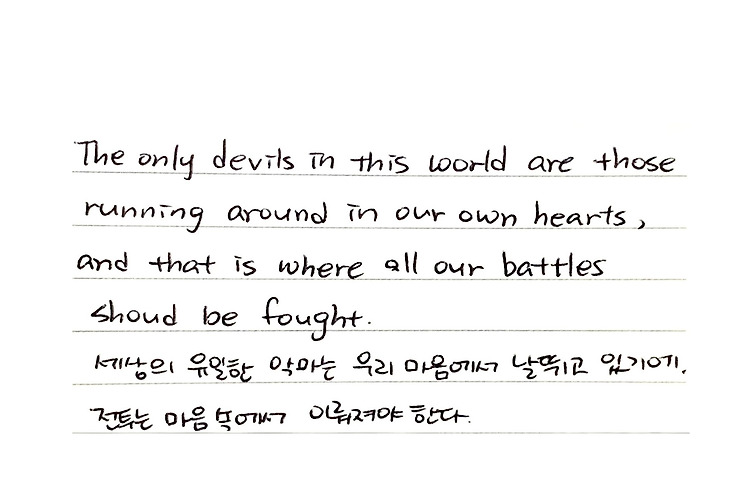 The only devils in this world are those
running around in our own hearts,
and that is where all our battles
shoud be fought.
세상의 유일한 악마는 우리 마음에서 날뛰고 있기에.
전투는 마음 속에서 이뤄져야 한다.